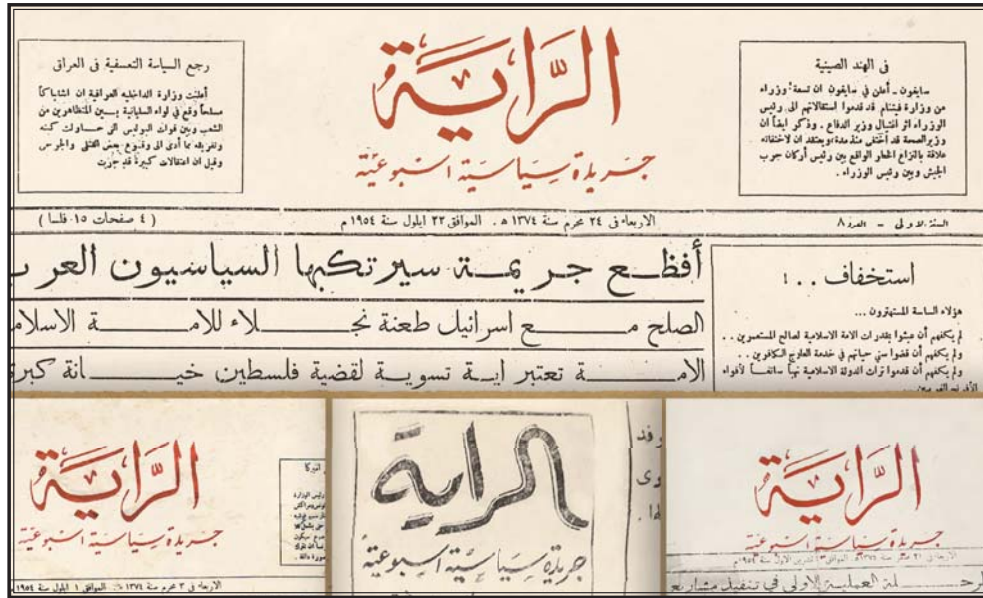 في الهند الصينية
سايغون - أعلن في سايغون ان تسعة وزراء
من وزارة فيتنام قد قدموا استقالاتهم الى رئيس
الوزراء اثر اغتيال وزير الدفاع . وذكر ايضاً ان
وزير الصحة قد أختفى منذ مدة ويعتقد ان لاختفائه
علاقة بالنزاع الخطر الواقع بين رئيس أركان حرب
الجيش وبين رئيس الوزراء .
الرَّايَة
جريدة سياسية اسبوعية
رجع السياسة التعسفية في العراق
أعلنت وزارة الداخلية العراقية ان اشتباكاً
مسلحاً وقع في لواء السليمانية بين المتظاهرين من
الشعب وبين قوات البوليس التي حاولت كبته
وتفريقه مما أدى الى وقوع بعض القتلى والجرحى
وقيل ان اعتقالات كبيرة قد جرت
السنة الاولى - العدد ٨
الاربعاء في ٢٤ محرم سنة ١٣٧٤ هـ . الموافق ٢٢ ايلول سنة ١٩٥٤ م
( ٤ صفحات ١٥ فلسا )
استخفاف . . !
هؤلاء الساسة المستهترون ...
لم يكفهم أن عبثوا بمقدرات الامة الاسلامية لصالح المستعمرين . .
ولم يكفهم أن قضوا سني حياتهم في خدمة العلوج الكافرين . .
ولم يكفهم أن قدموا تراث الدولة الاسلامية نهباً سائغاً لأفواه
أفظع جريمة سيرتكبها السياسيون العرب
الصلح مع اسرائيل طعنة نجلاء للامة الاسلام
الامة تعتبر اية تسوية لقضية فلسطين خيانة كبر
الرَّايَة
جريدة سياسية اسبوعية
لة العملية الاولى في تنفيذ
الراية
جريدة سياسية اسبوعية
وفد
وى
ها .
الرَّايَة
جريدة سياسية اسبوعية
الاربعاء في ٣ محرم سنة ١٣٧٤ هـ . الموافق ١ ايلول سنة ١٩٥٤